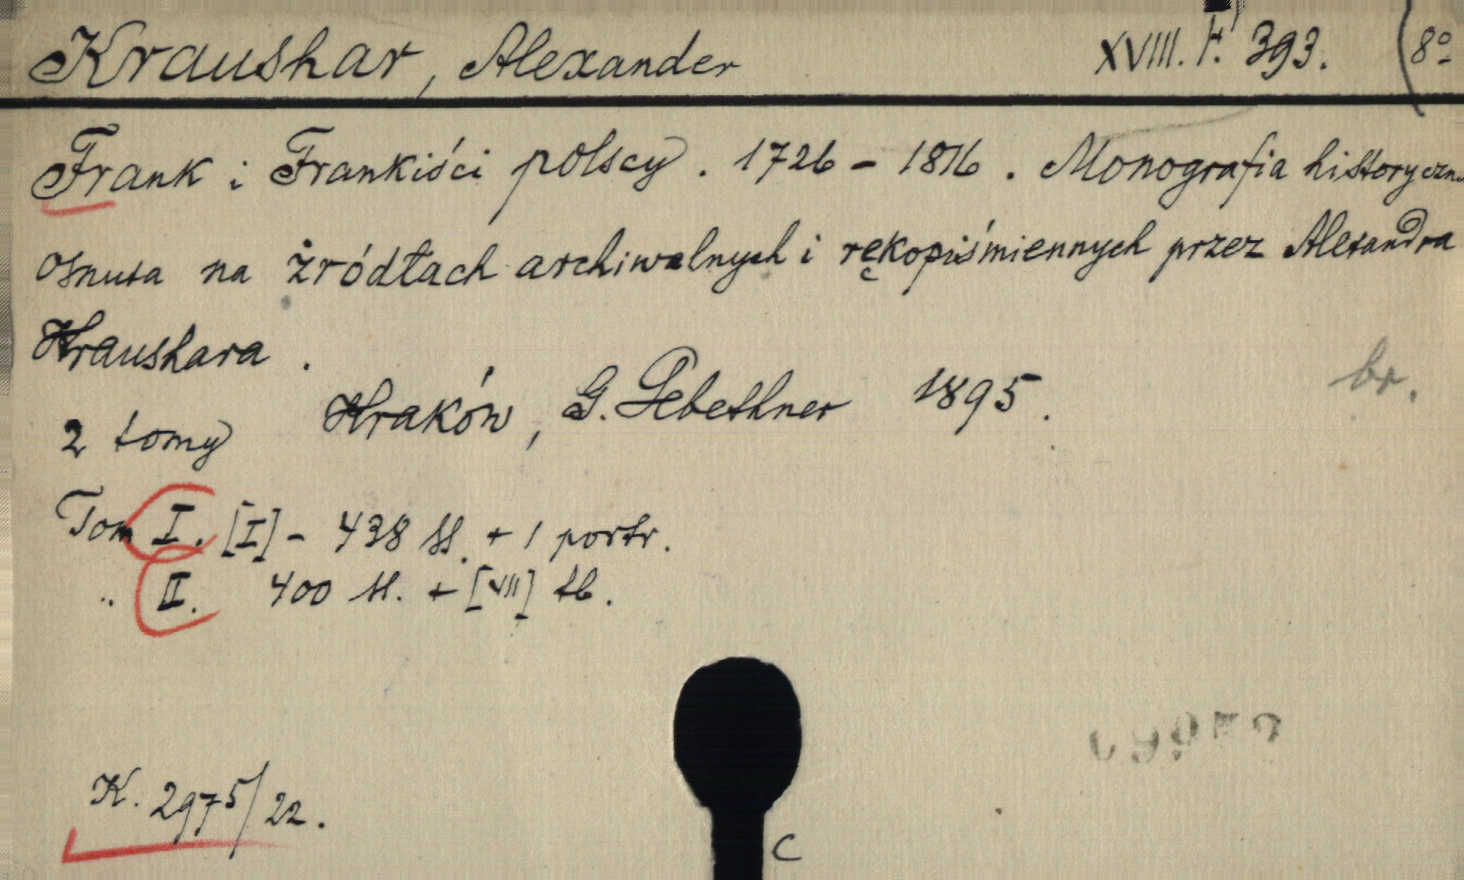 Kraushar, Alexander XVIII. H. 393. (8º
Frank i Frankiści polscy. 1726 - 1816. Monografia historyczn
osnuta na żródłach archiwalnych i rękopiśmiennych przez Alexandra
Kraushara.
br.
2 tomy Kraków, G. Gebethner 1895.
Tom I. [I] - 438 st. + 1 portr.
" II. 400 st. + [VII] tb.
K. 2975/22.
C